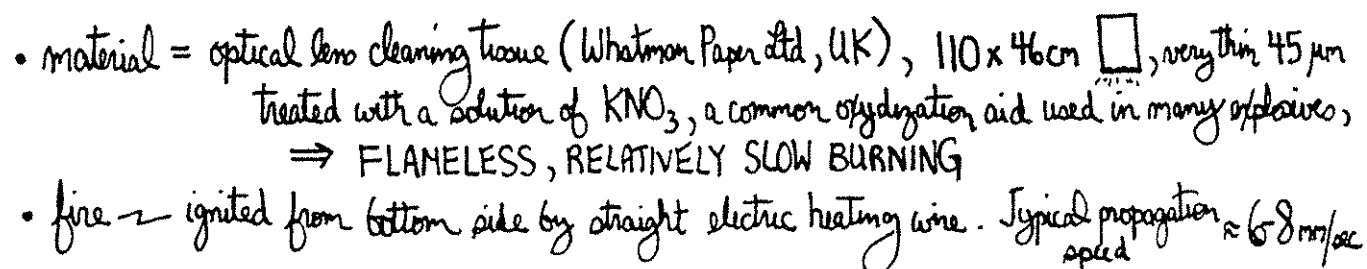 • material = optical lens cleaning tissue (Whatman Paper Ltd, UK), 110 x 46cm , very thin 45 μm
treated with a solution of KNO₃, a common oxydization aid used in many explosives,
⇒ FLAMELESS, RELATIVELY SLOW BURNING
• fire ~ ignited from bottom side by straight electric heating wire. Typical propagation speed ≈ 6-8 mm/sec